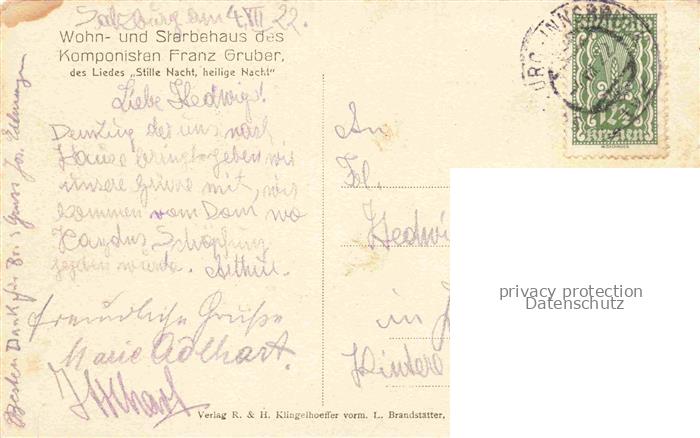 Salzburg am 4. VII 22.
Wohn- und Sterbehaus des
Komponisten Franz Gruber,
des Liedes „Stille Nacht, heilige Nacht"
Liebe Hedwig!
Dem Zug der uns nach
Hause bringt geben wir
unsere Grüsse mit, wir
kommen vom Dom wo
Haydns Schöpfung
gegeben wurde. Arthur.
freundliche Grüße
Marie Adlhart.
Besten Dank für
Gruss Jos.
An
Frl.
Hedwig
in
Hintere
Verlag R. & H. Klingelhoeffer vorm. L. Brandstätter,
12½
Kronen
privacy protection
Datenschutz